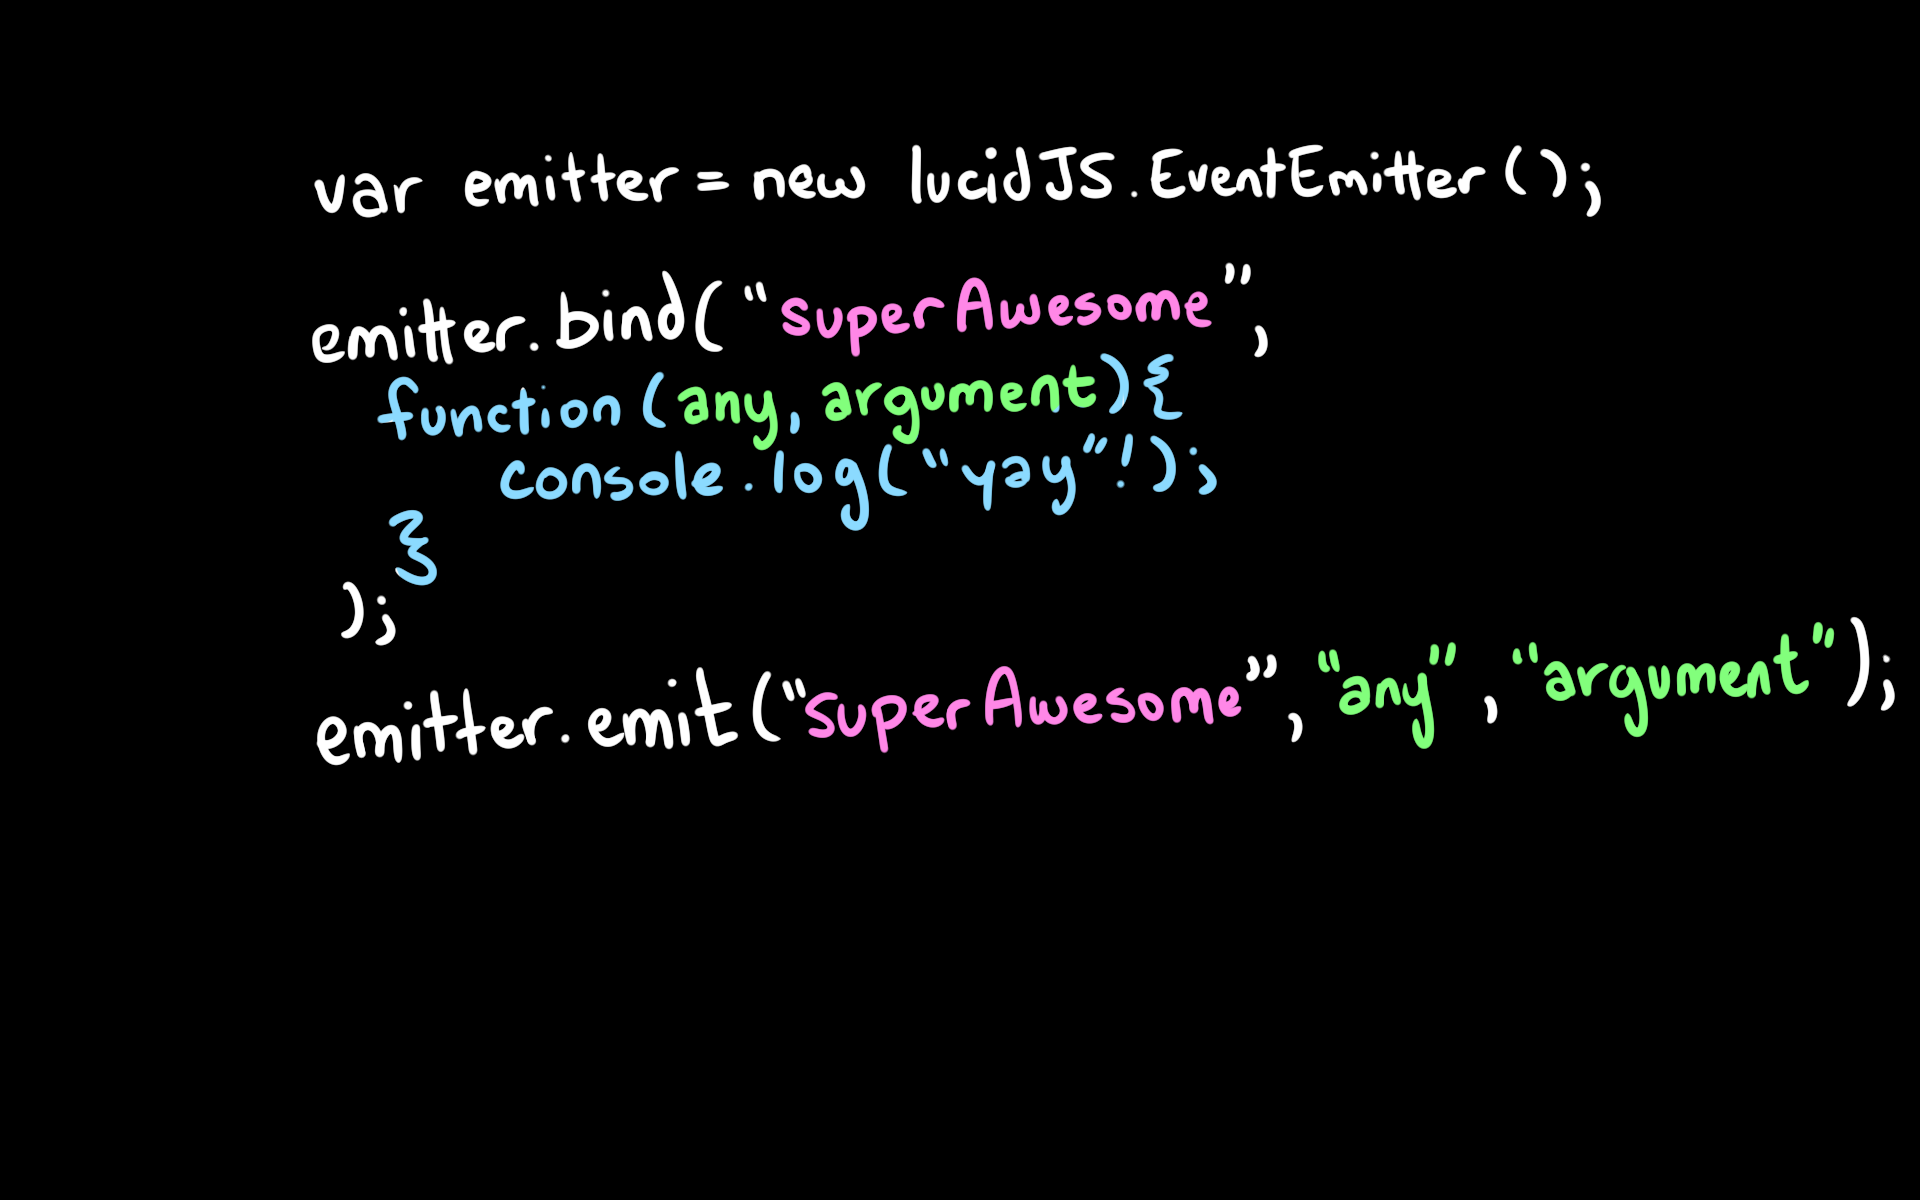 var emitter = new lucidJS.EventEmitter();
emitter.bind("superAwesome",
function(any, argument){
console.log("yay"!);
}
);
emitter.emit("superAwesome", "any", "argument");